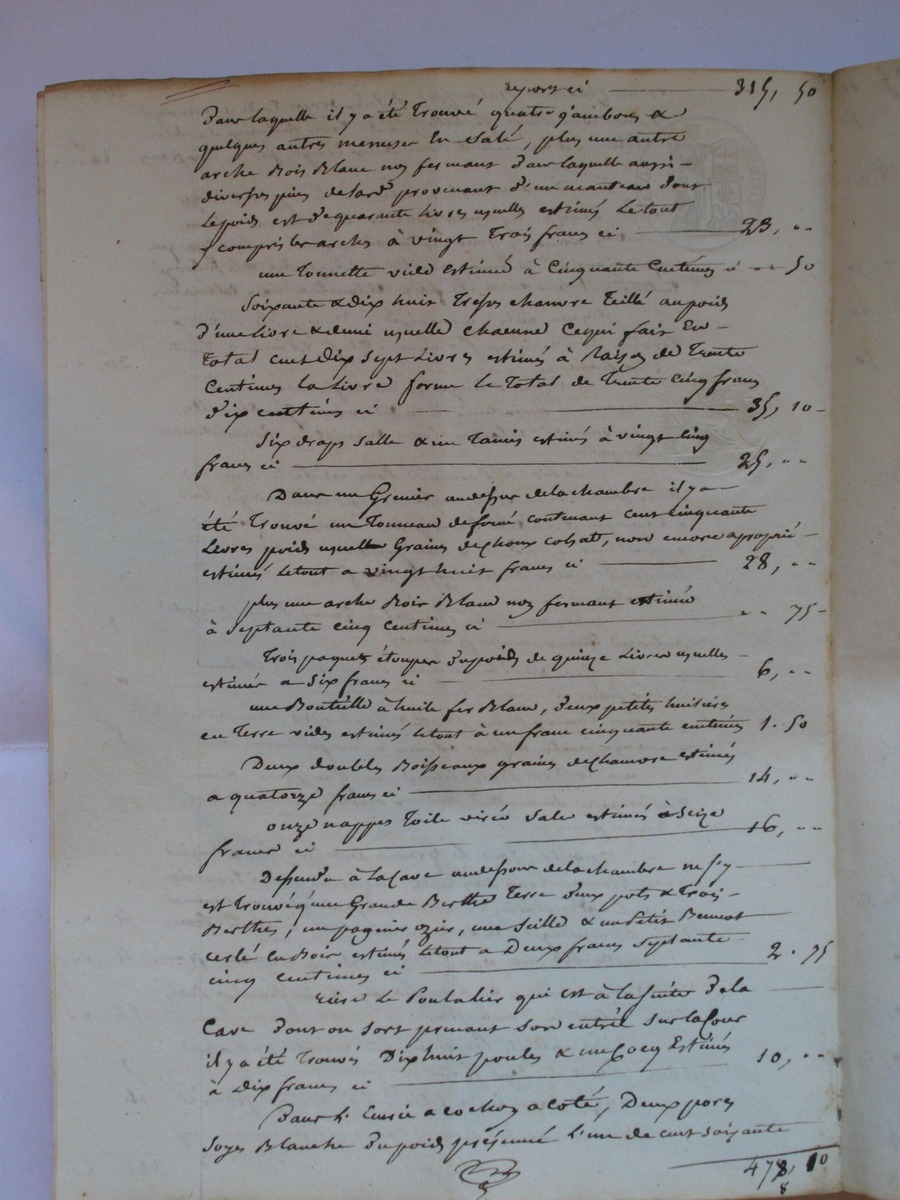 report ci 315, 50
Dans laquelle il y a été Trouvé quatre jambons &
quelques autres menuser En Salé, plus une autre
arche Bois Blanc non fermant Dans laquelle aussi
diverses pieces de lard provenant d'un manteau dont
Le poids est de quarante Livres usuelles estimés Le tout
y compris les arches à vingt Trois francs ci 23, "
une Tounette vide Estimée à Cinquante Centimes ci " 50
Soixante & Dix huit Treses chanvre Teillé au poids
d'une Livre & demi usuelle chacune Cequi fait En
Total cent Dix Sept Livres estimés à Raison de Trente
Centimes la Livre forme le Total de Trente Cinq francs
Dix centimes ci 35, 10
Six draps Salle & un Tamis estimés à vingt cinq
francs ci 25, "
Dans un Grenier au dessus de la chambre il y a
été Trouvé un Tonneau defoncé contenant Cent cinquante
Livres poids usuelle Grains de choux colsat, non encore aproprié
estimés Le tout a vingt huit francs ci 28, "
plus une arche Bois Blanc non fermant estimée
à Septante cinq Centimes ci " 75
Trois paquets étoupes du poids de quinze Livres usuelles
estimés a Six francs ci 6, "
une Bouteille à huile fer Blanc, Deux petits huiliers
en Terre vides estimés Le tout à un franc cinquante centimes 1. 50
Deux doubles Boisseaux grains de chanvre estimés
a quatorze francs ci 14, "
onze nappes Toile virée Sale estimés à Seize
francs ci 16, "
Dessendu à La Cave au dessous de la chambre ne s'y
est Trouvé qu'une Grande Berthe Terre Deux pots & Trois
Berthes, un pagnier ozier, une Seille & un Petit
cerlé en Bois estimés Le tout a Deux francs Septante
cinq centimes ci 2. 75
Le Poulalier qui est à la suite De la
Cave Dont on Sort prenant Son entrée Sur la Cour
il y a été Trouvés Dix huit poules & un Cocq Estimés
à Dix francs ci 10, "
Dans L' Ecurie a cochon a coté, Deux porcs
Soyes Blanche Du poids présumé L'une de cent soixante
478, 10
8